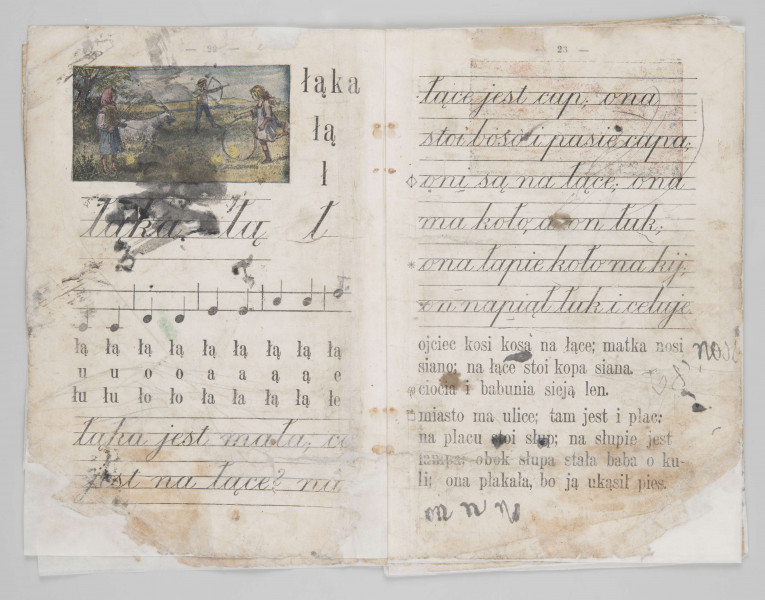 — 22 —
łąka
łą
ł
łąka, łą ł
łą łą łą łą łą łą łą łą łą
u u o o a a ą ą e
łu łu ło ło ła ła łą łą łe
łąka jest mała; co
jest na łące? na
— 23 —
łące jest cap; ona
stoi boso i pasie capa;
oni są na łące; ona
ma koło, a on łuk;
ona łapie koło na kij,
on napiął łuk i celuje
ojciec kosi kosą na łące; matka nosi
siano; na łące stoi kopa siana.
ciocia i babunia sieją len.
miasto ma ulice; tam jest i plac;
na placu stoi słup; na słupie jest
lampa; obok słupa stała baba o ku-
li; ona płakała, bo ją ukąsił pies.